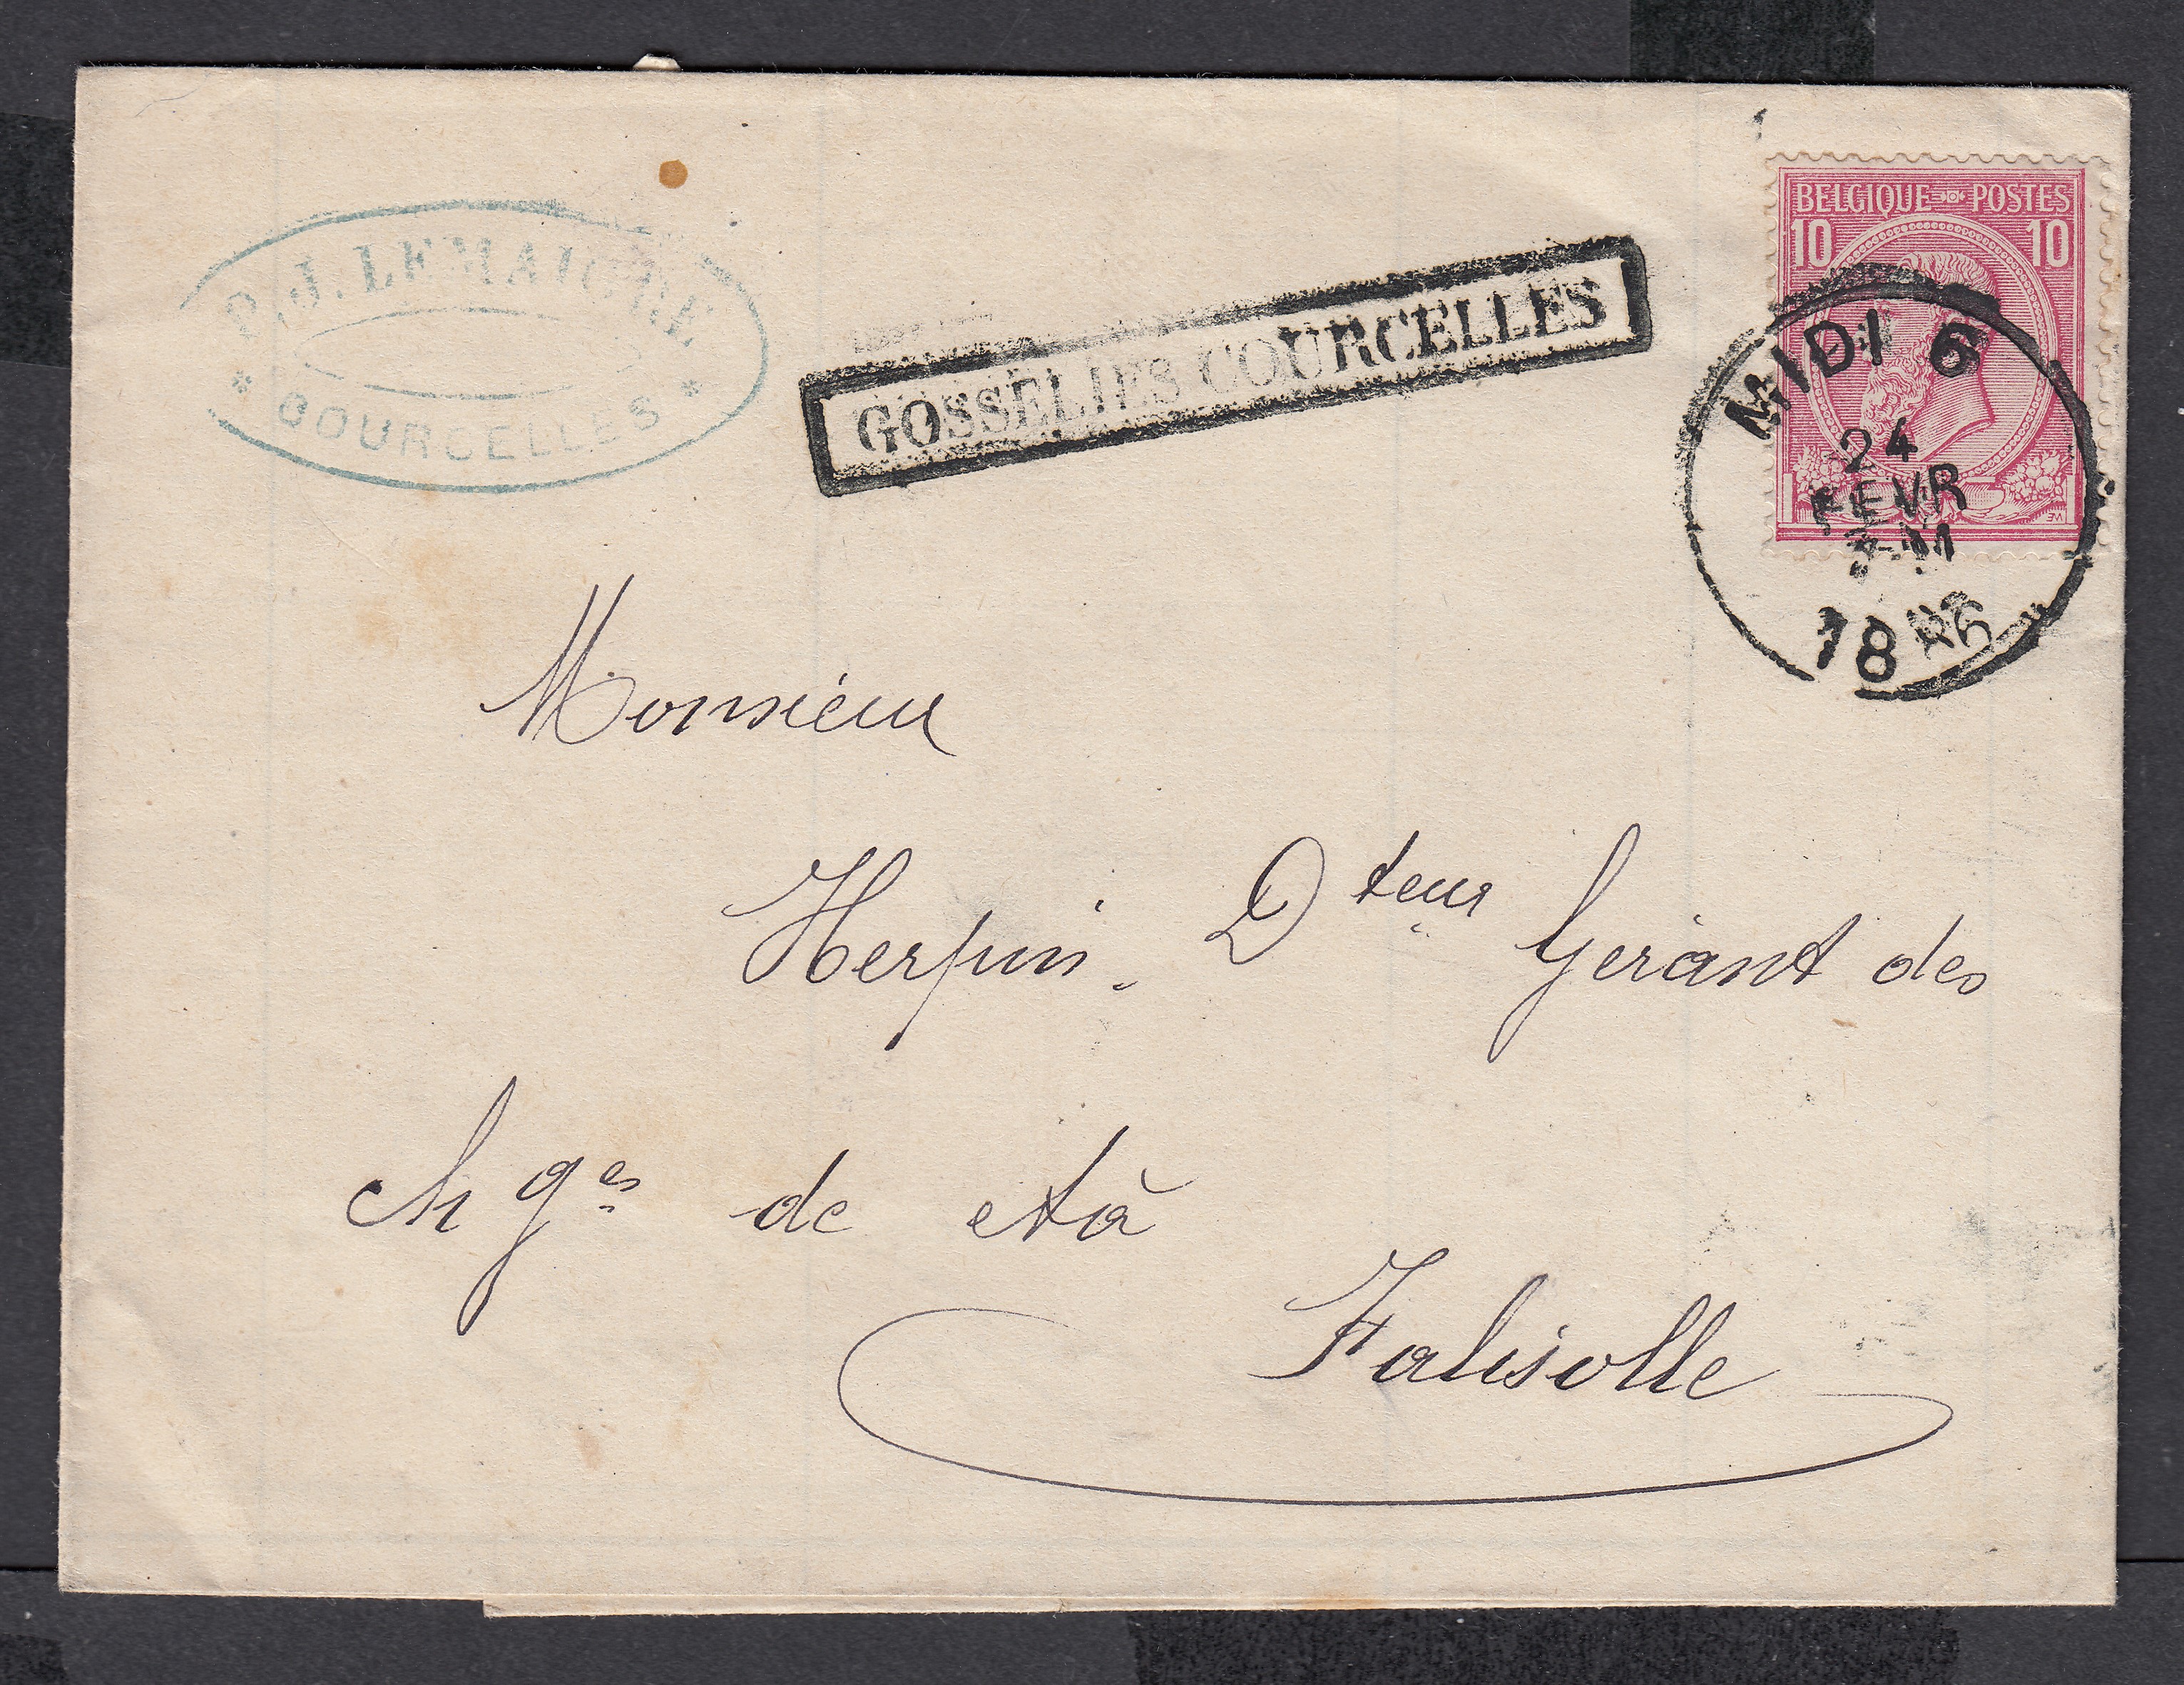 P.J. LEMAIGRE
* COURCELLES *
GOSSELIES COURCELLES
BELGIQUE POSTES
10 10
MIDI 6
24
FEVR
1886
Monsieur
Herpin. Dteur Gerant des
chges de et à
Falisolle